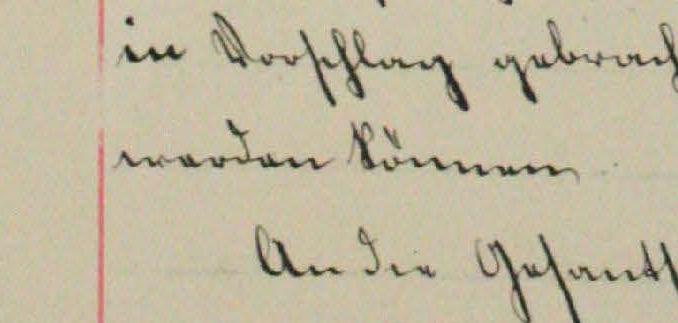 in Vorschlag gebrach
werden können.
An die Gesandts